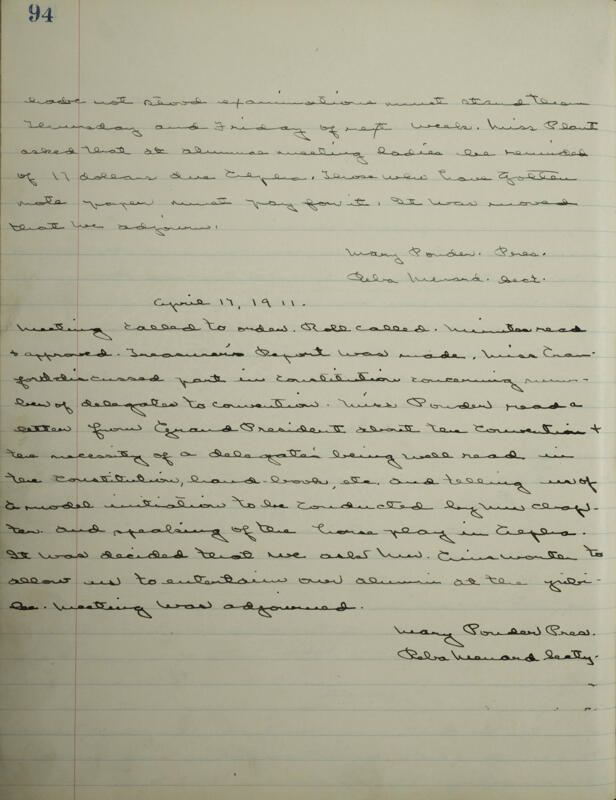 94
have not stood examinations must stand them
Thursday and Friday of next week. Miss Plant
asked that at alumnae meeting ladies be reminded
of 17 dollars due Alpha. Those who have gotten
note paper must pay for it. It was moved
that we adjourn.
Mary Ponder. Pres.
Reba Menard. Sect.
April 17, 1911.
Meeting called to order. Roll called. Minutes read
+ approved. Treasurer's Report was made. Miss Craw-
ford discussed part in constitution concerning num-
ber of delegates to convention. Miss Ponder read a
letter from Grand President about the convention +
the necessity of a delegate's being well read in
the constitution, hand-book, etc. and telling us of
a model initiation to be conducted by our chap-
ter and speaking of the horse play in Alpha.
It was decided that we ask Mr. Ainsworth to
allow us to entertain our alumni at the jubi-
lee. Meeting was adjourned.
Mary Ponder Pres.
Reba Menard Secty.